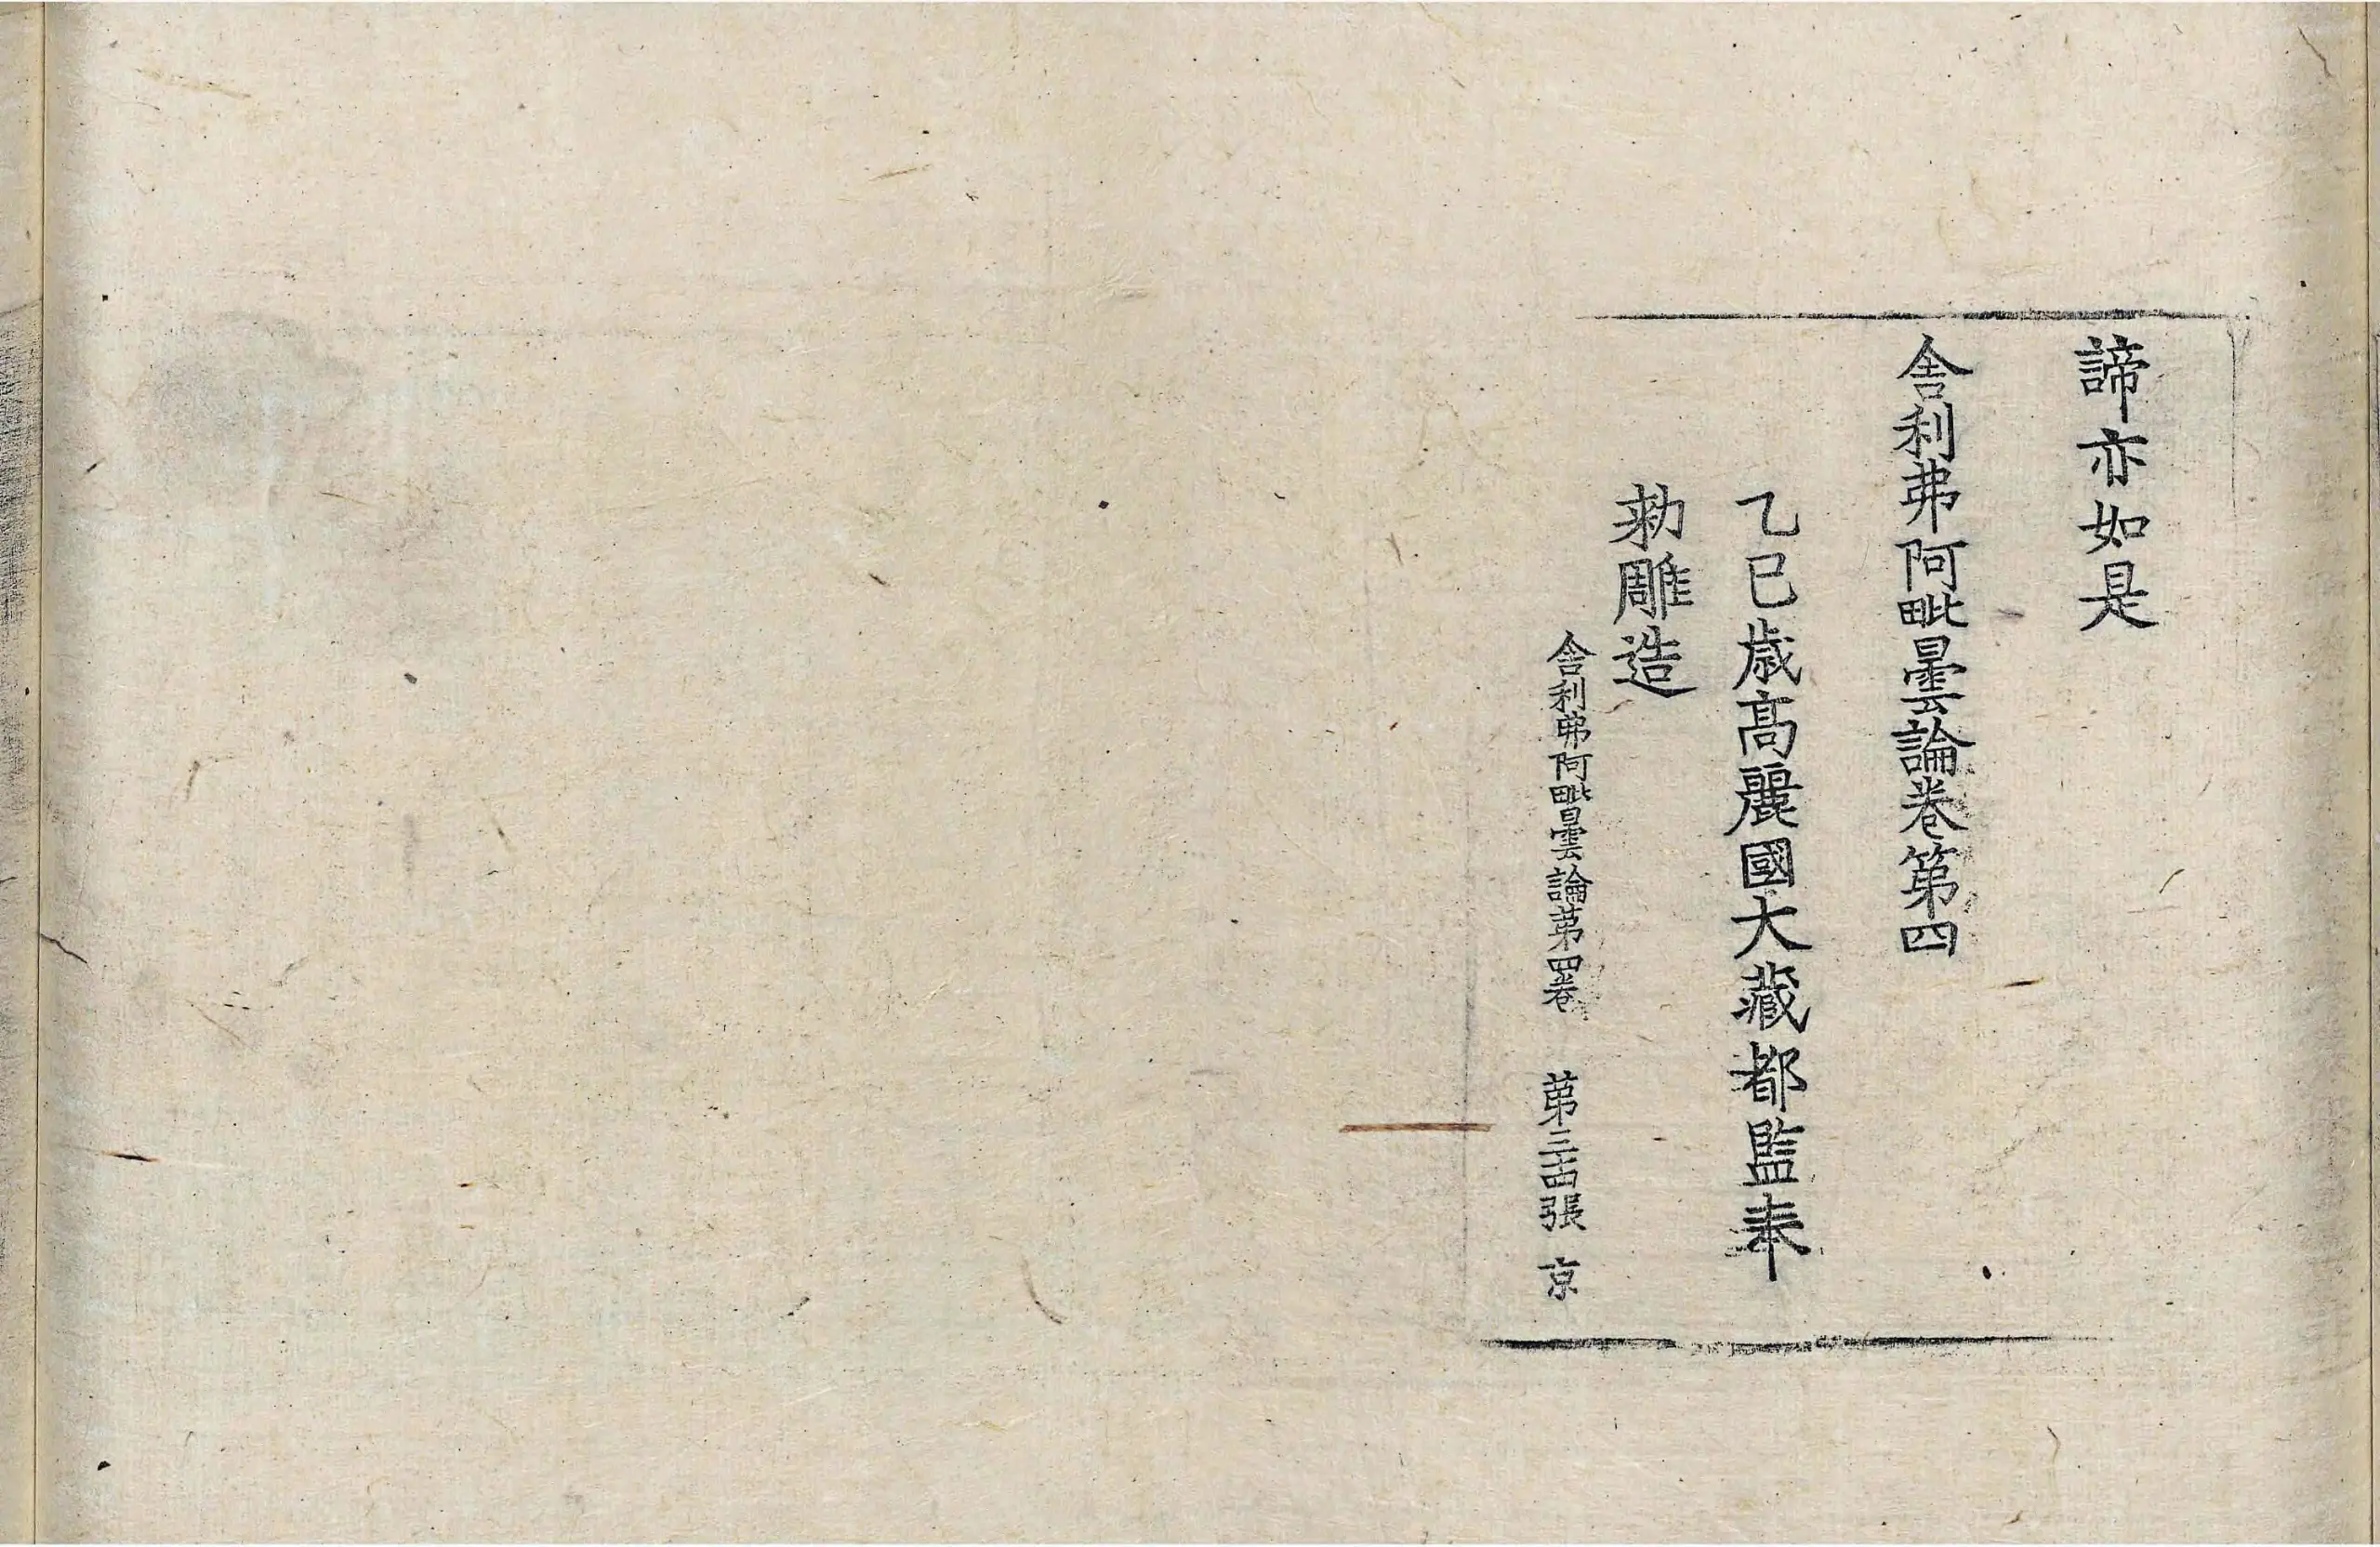 諦亦如是
舎利弗阿毗曇論卷第四
乙巳歲高麗國大藏都監奉
勅雕造
舎利弗阿毗曇論苐四卷　苐三十四張　京